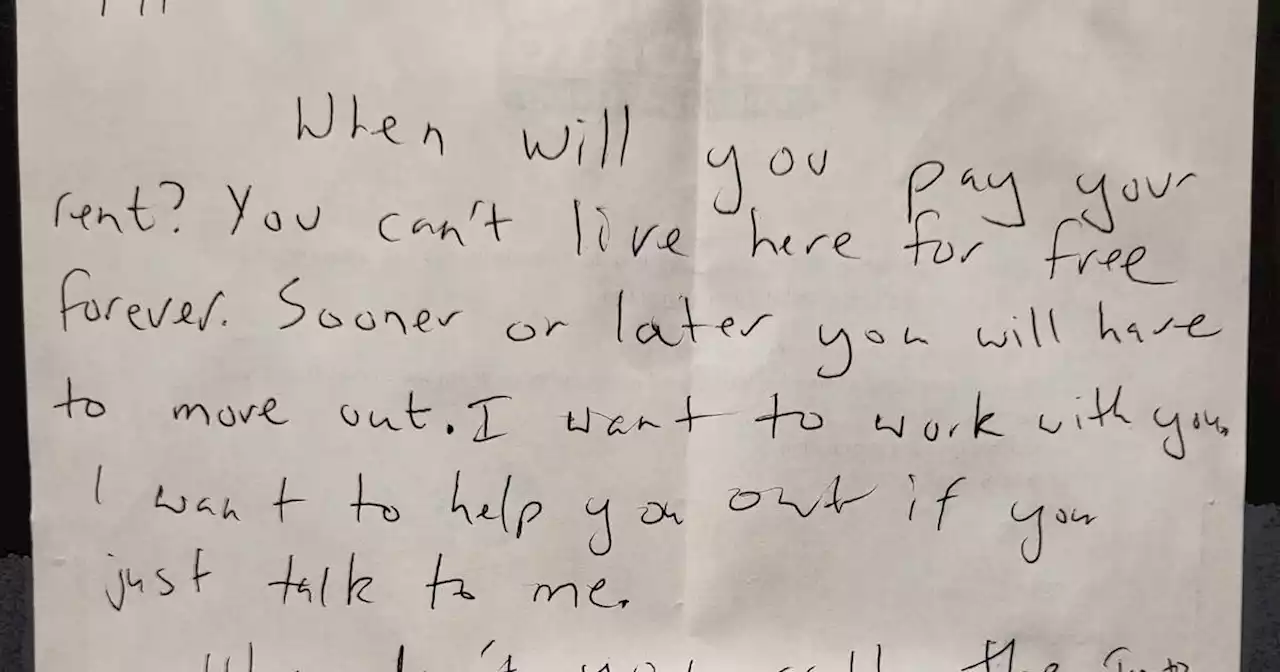 When will you pay your
rent? You can't live here for free
forever. Sooner or later you will have
to move out. I want to work with you.
I want to help you out if you
just talk to me.